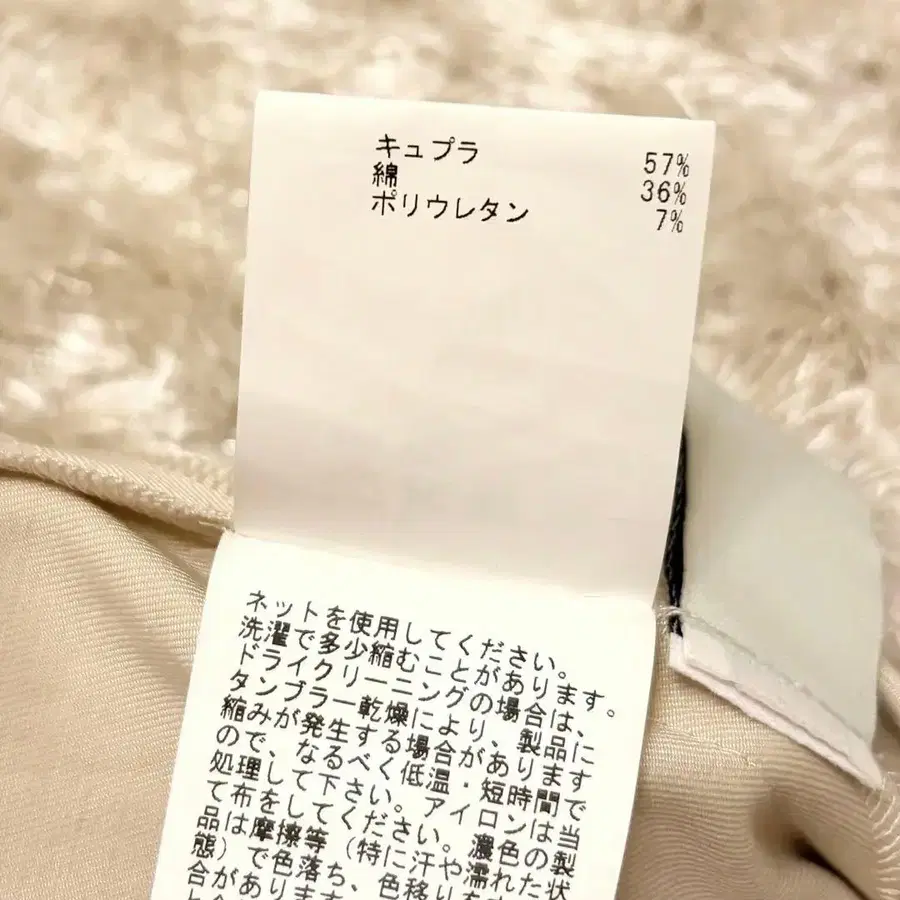 キュプラ 57%
綿 36%
ポリウレタン 7%
ネットを使用してください。
洗濯で多少縮むことがあります。
ドライクリーニングの場合は、
タンブラー乾燥により、製品に
縮みが発生する場合があります
ので、なるべく低温・短時間で
処理して下さい。アイロンは当
て布をしてください。濃色の製
品は摩擦等(特に汗や濡れた状
態)で色落ち、色移り
合があります